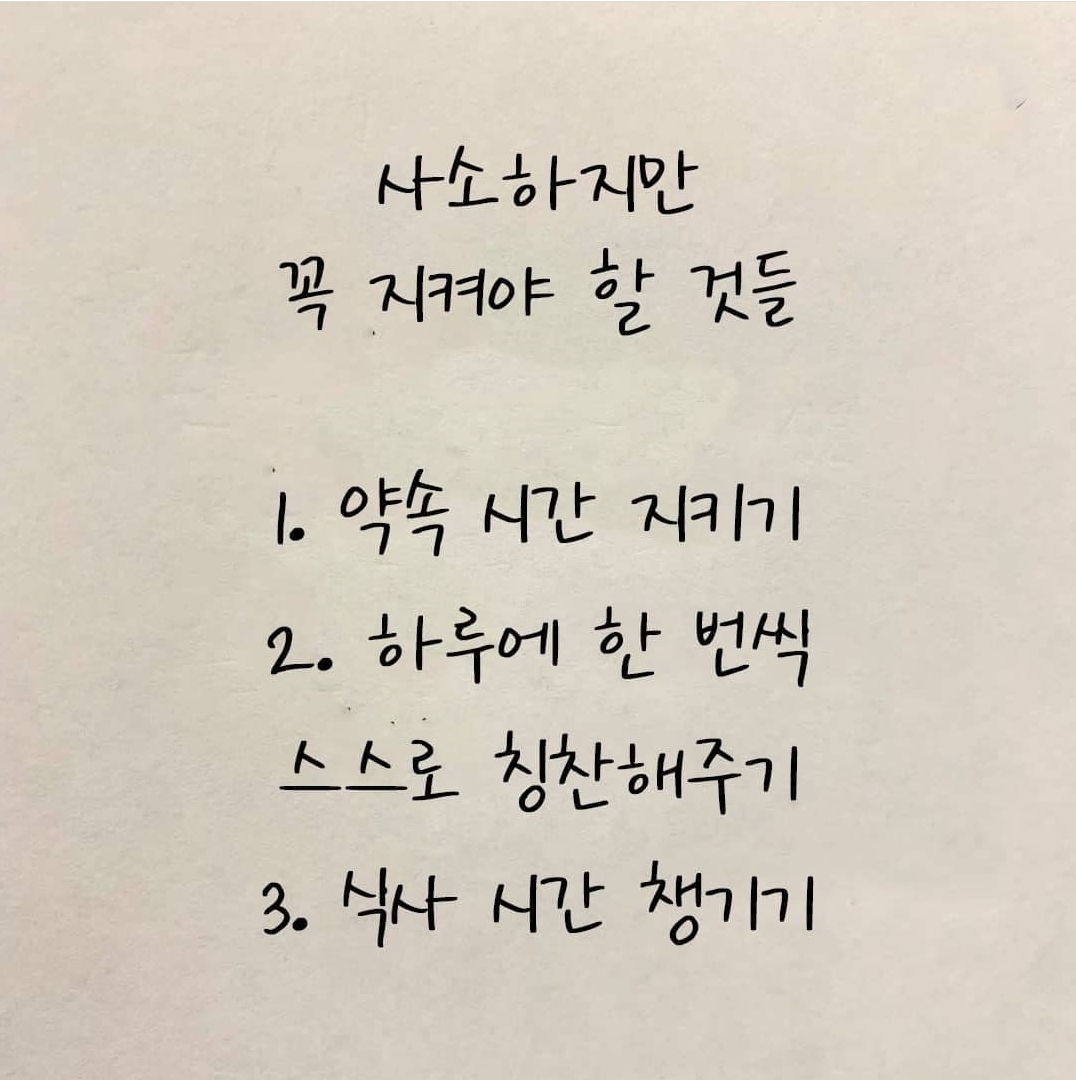 사소하지만
꼭 지켜야 할 것들
1. 약속 시간 지키기
2. 하루에 한 번씩
스스로 칭찬해주기
3. 식사 시간 챙기기